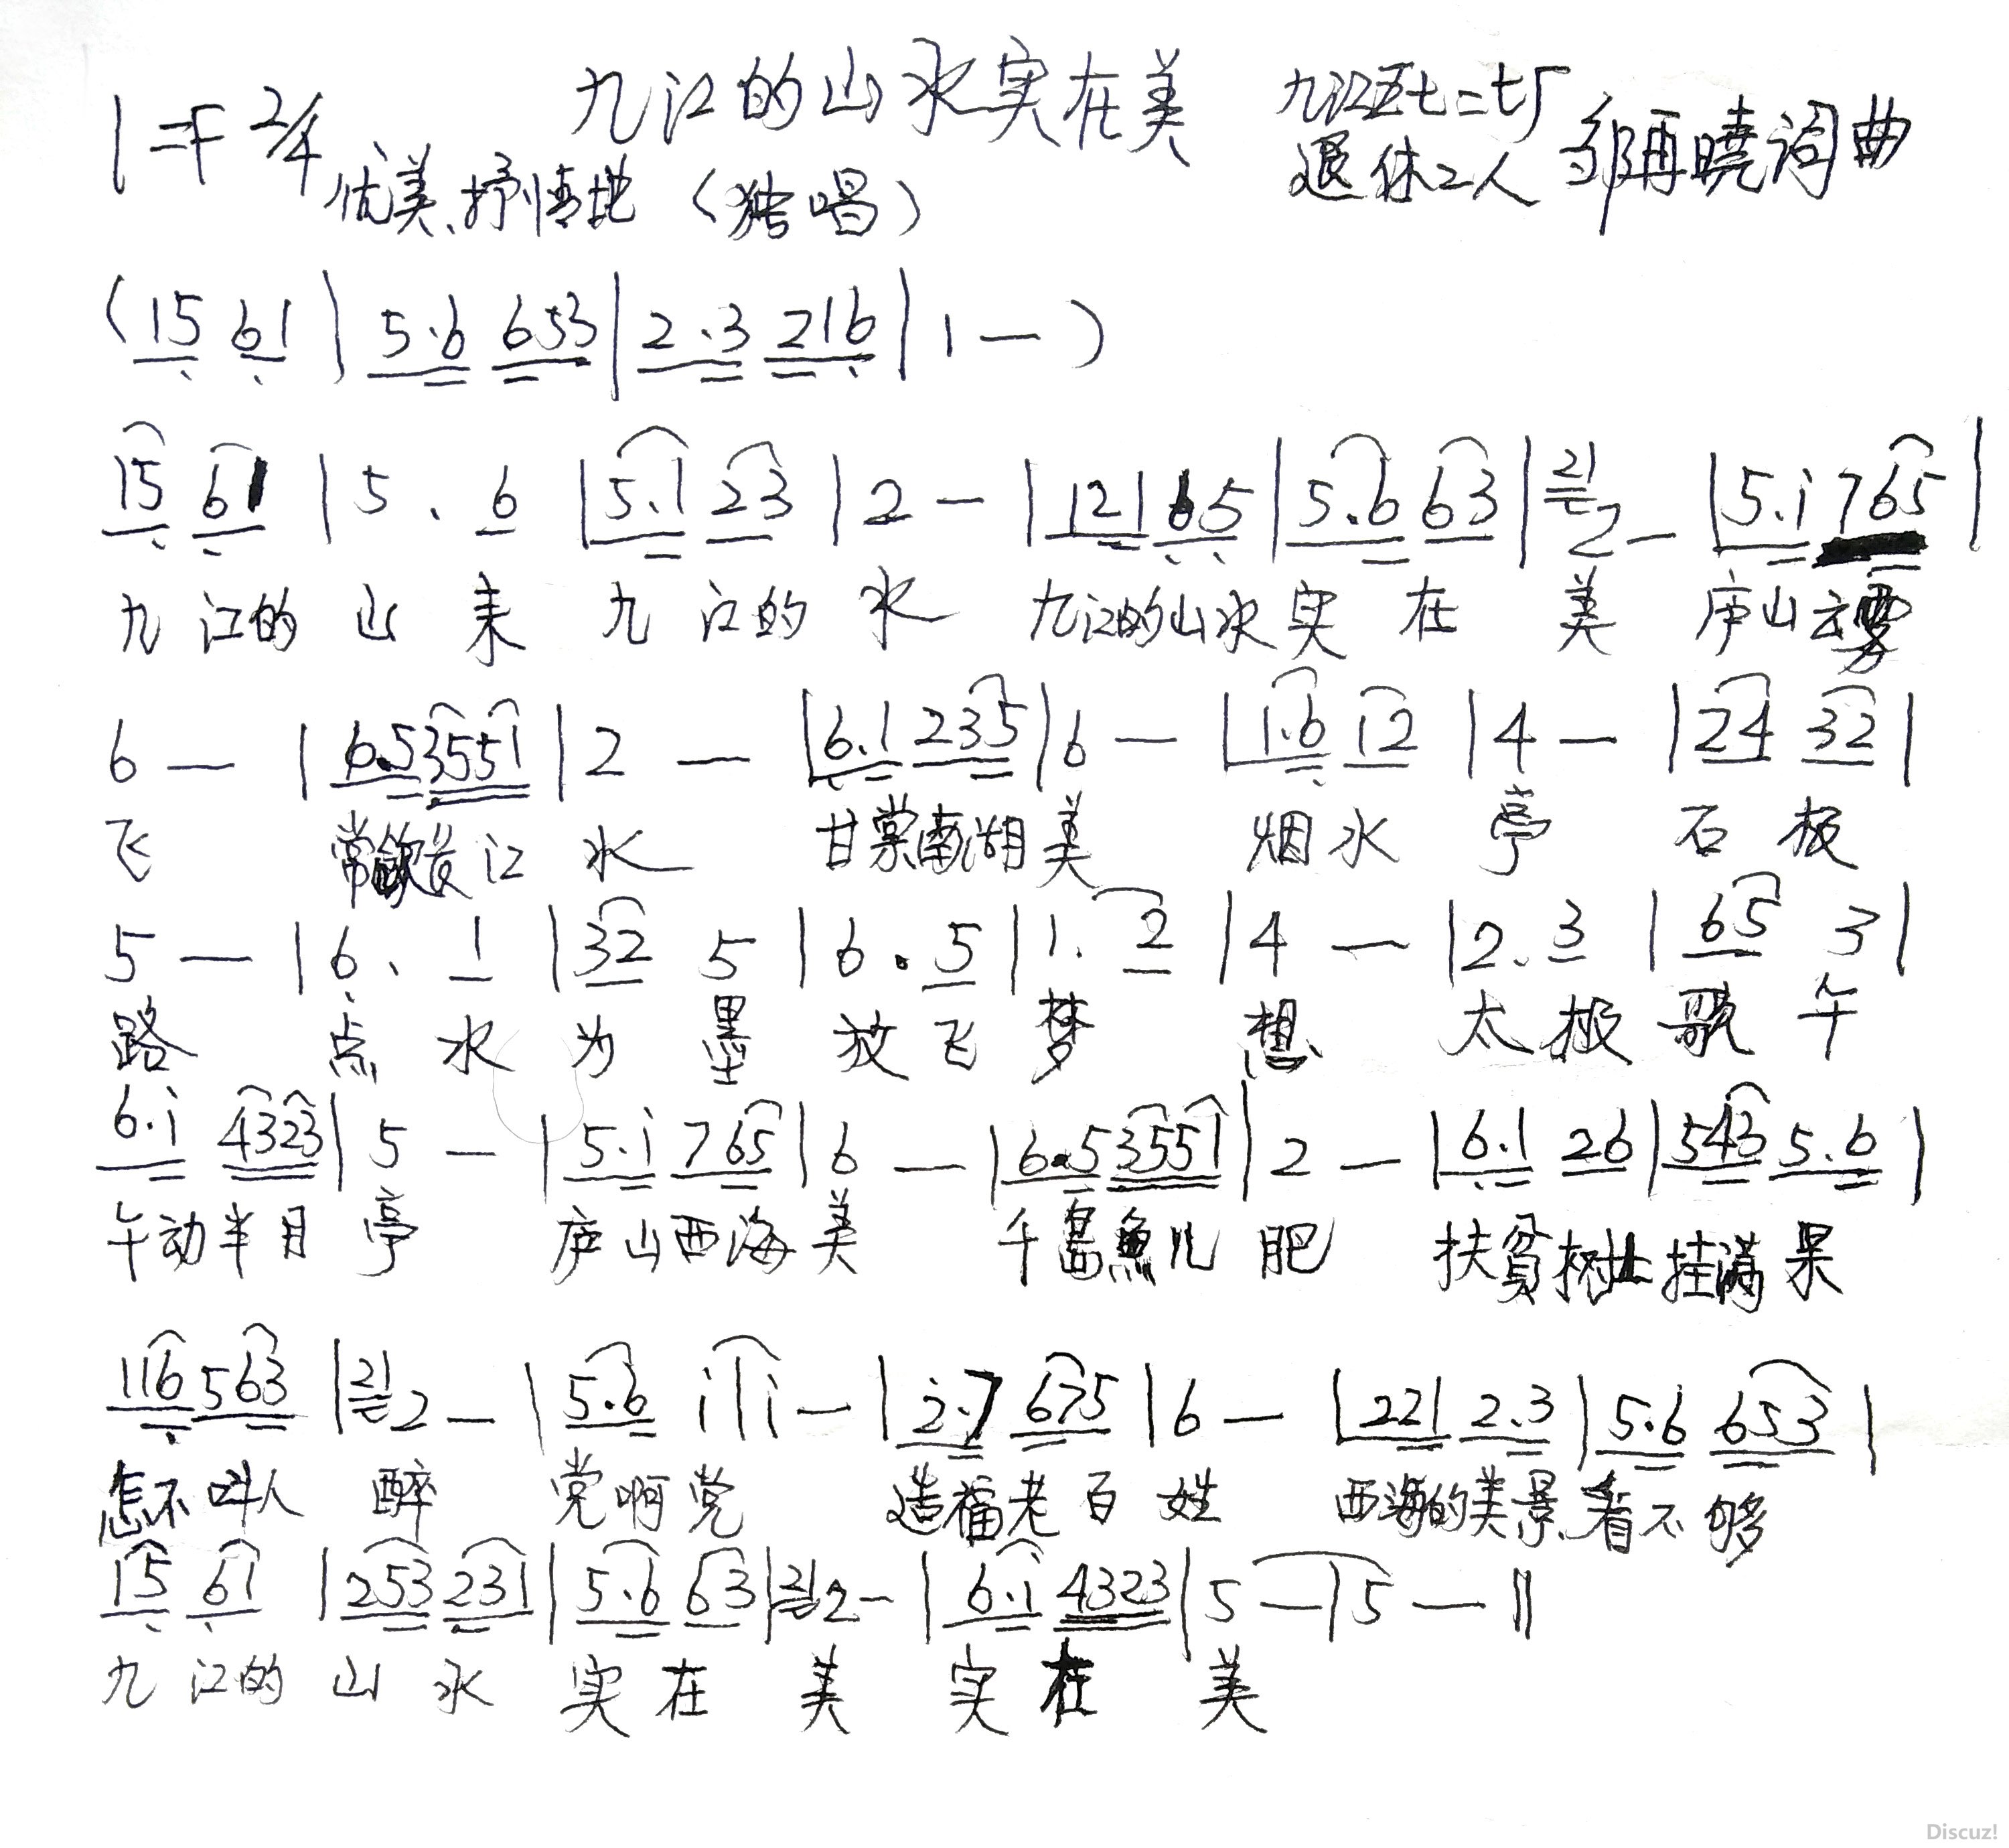 九江的山水实在美
1=F 2/4 优美、抒情地 (独唱)
九江五七二七厂
退休工人 邹再曉词曲
(15 61 | 5·6 653 | 2·3 216 | 1 — )
15 61 | 5 · 6 | 5·1 23 | 2 — | 121 65 | 5·6 63 | 21 2 — | 5·i 765 |
九 江的 山 来 九 江的 水 九江的山水实 在 美 庐山云雾
6 — | 6·53551 | 2 — | 6·1 235 | 6 — | 1·6 12 | 4 — | 24 32 |
飞 常飲长江 水 甘棠南湖美 烟水 亭 石 板
5 — | 6 · 1 | 32 5 | 6 · 5 | 1 · 2 | 4 — | 2 · 3 | 65 3 |
路 点 水 为 墨 放飞 梦 想 太极 歌 午
6·i 4323 | 5 — | 5·i 765 | 6 — | 6·53551 | 2 — | 6·1 26 | 543 5·6 |
午动半月 亭 庐山西海 美 千島魚儿 肥 扶贫树上挂满 果
116 563 | 21 2 — | 5·6 i | i — | 2·7 675 | 6 — | 221 2·3 | 5·6 653 |
怎不叫人 醉 党啊党 造福老百 姓 西海的美景 看不 够
15 61 | 253 231 | 5·6 63 | 21 2 — | 6·1 4323 | 5 — | 5 — ||
九 江的 山 水 实 在 美 实 在 美
Discuz!